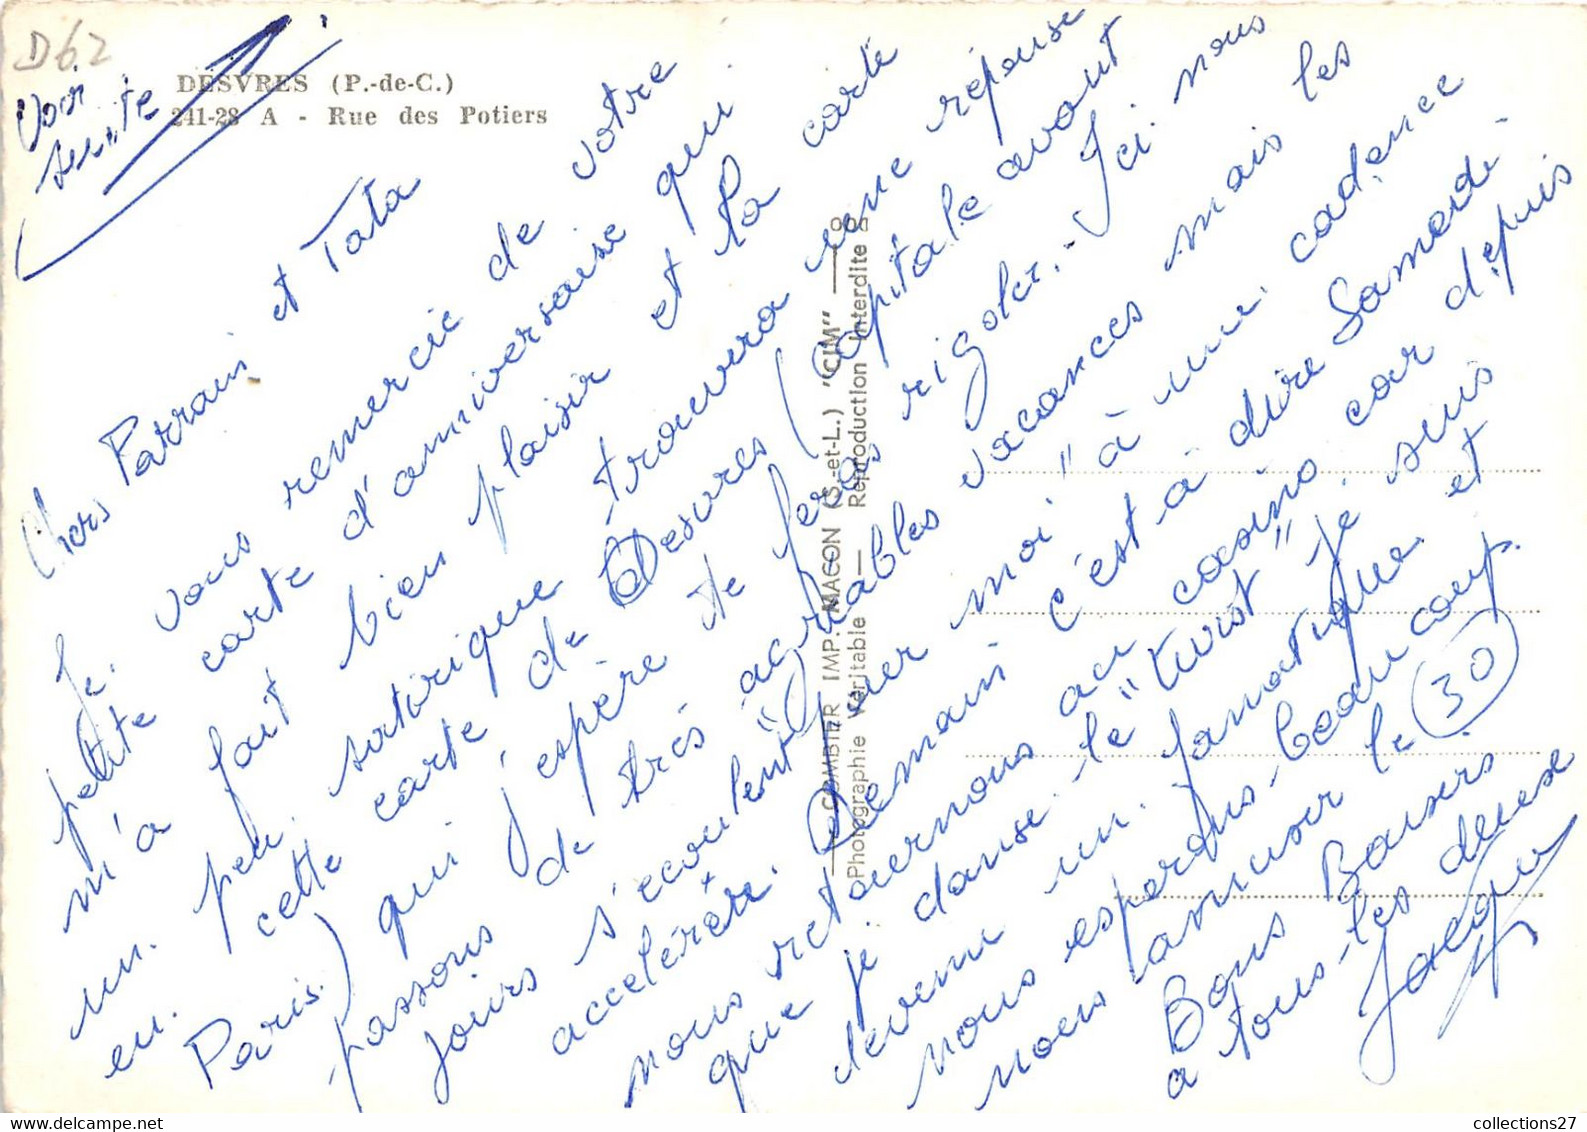 D62
Voir
suite
DESVRES (P.-de-C.)
241-28 A - Rue des Potiers
Chers Parrain et Tata
Je vous remercie de votre
petite carte d'anniversaire qui
m'a fait bien plaisir et la carte
un peu satirique trouvera une réponse
en cette carte de Desvres (Capitale avant
Paris.) qui j'espère te feras rigoler. - Ici nous
passons de très agréables vacances mais les
jours s'écoulent "pour moi" à une cadence
accélérée. Demain c'est à dire Samedi
nous retournons au casino car depuis
que je danse le "twist" je suis
devenu un fanatique et
nous espérons beaucoup
nous amuser le (30).
Bons Baisers
a tous les deux
Jacques
COMBIER IMP. MACON (S.-et-L.) "CIM"
Photographie Véritable — Reproduction Interdite
collections27